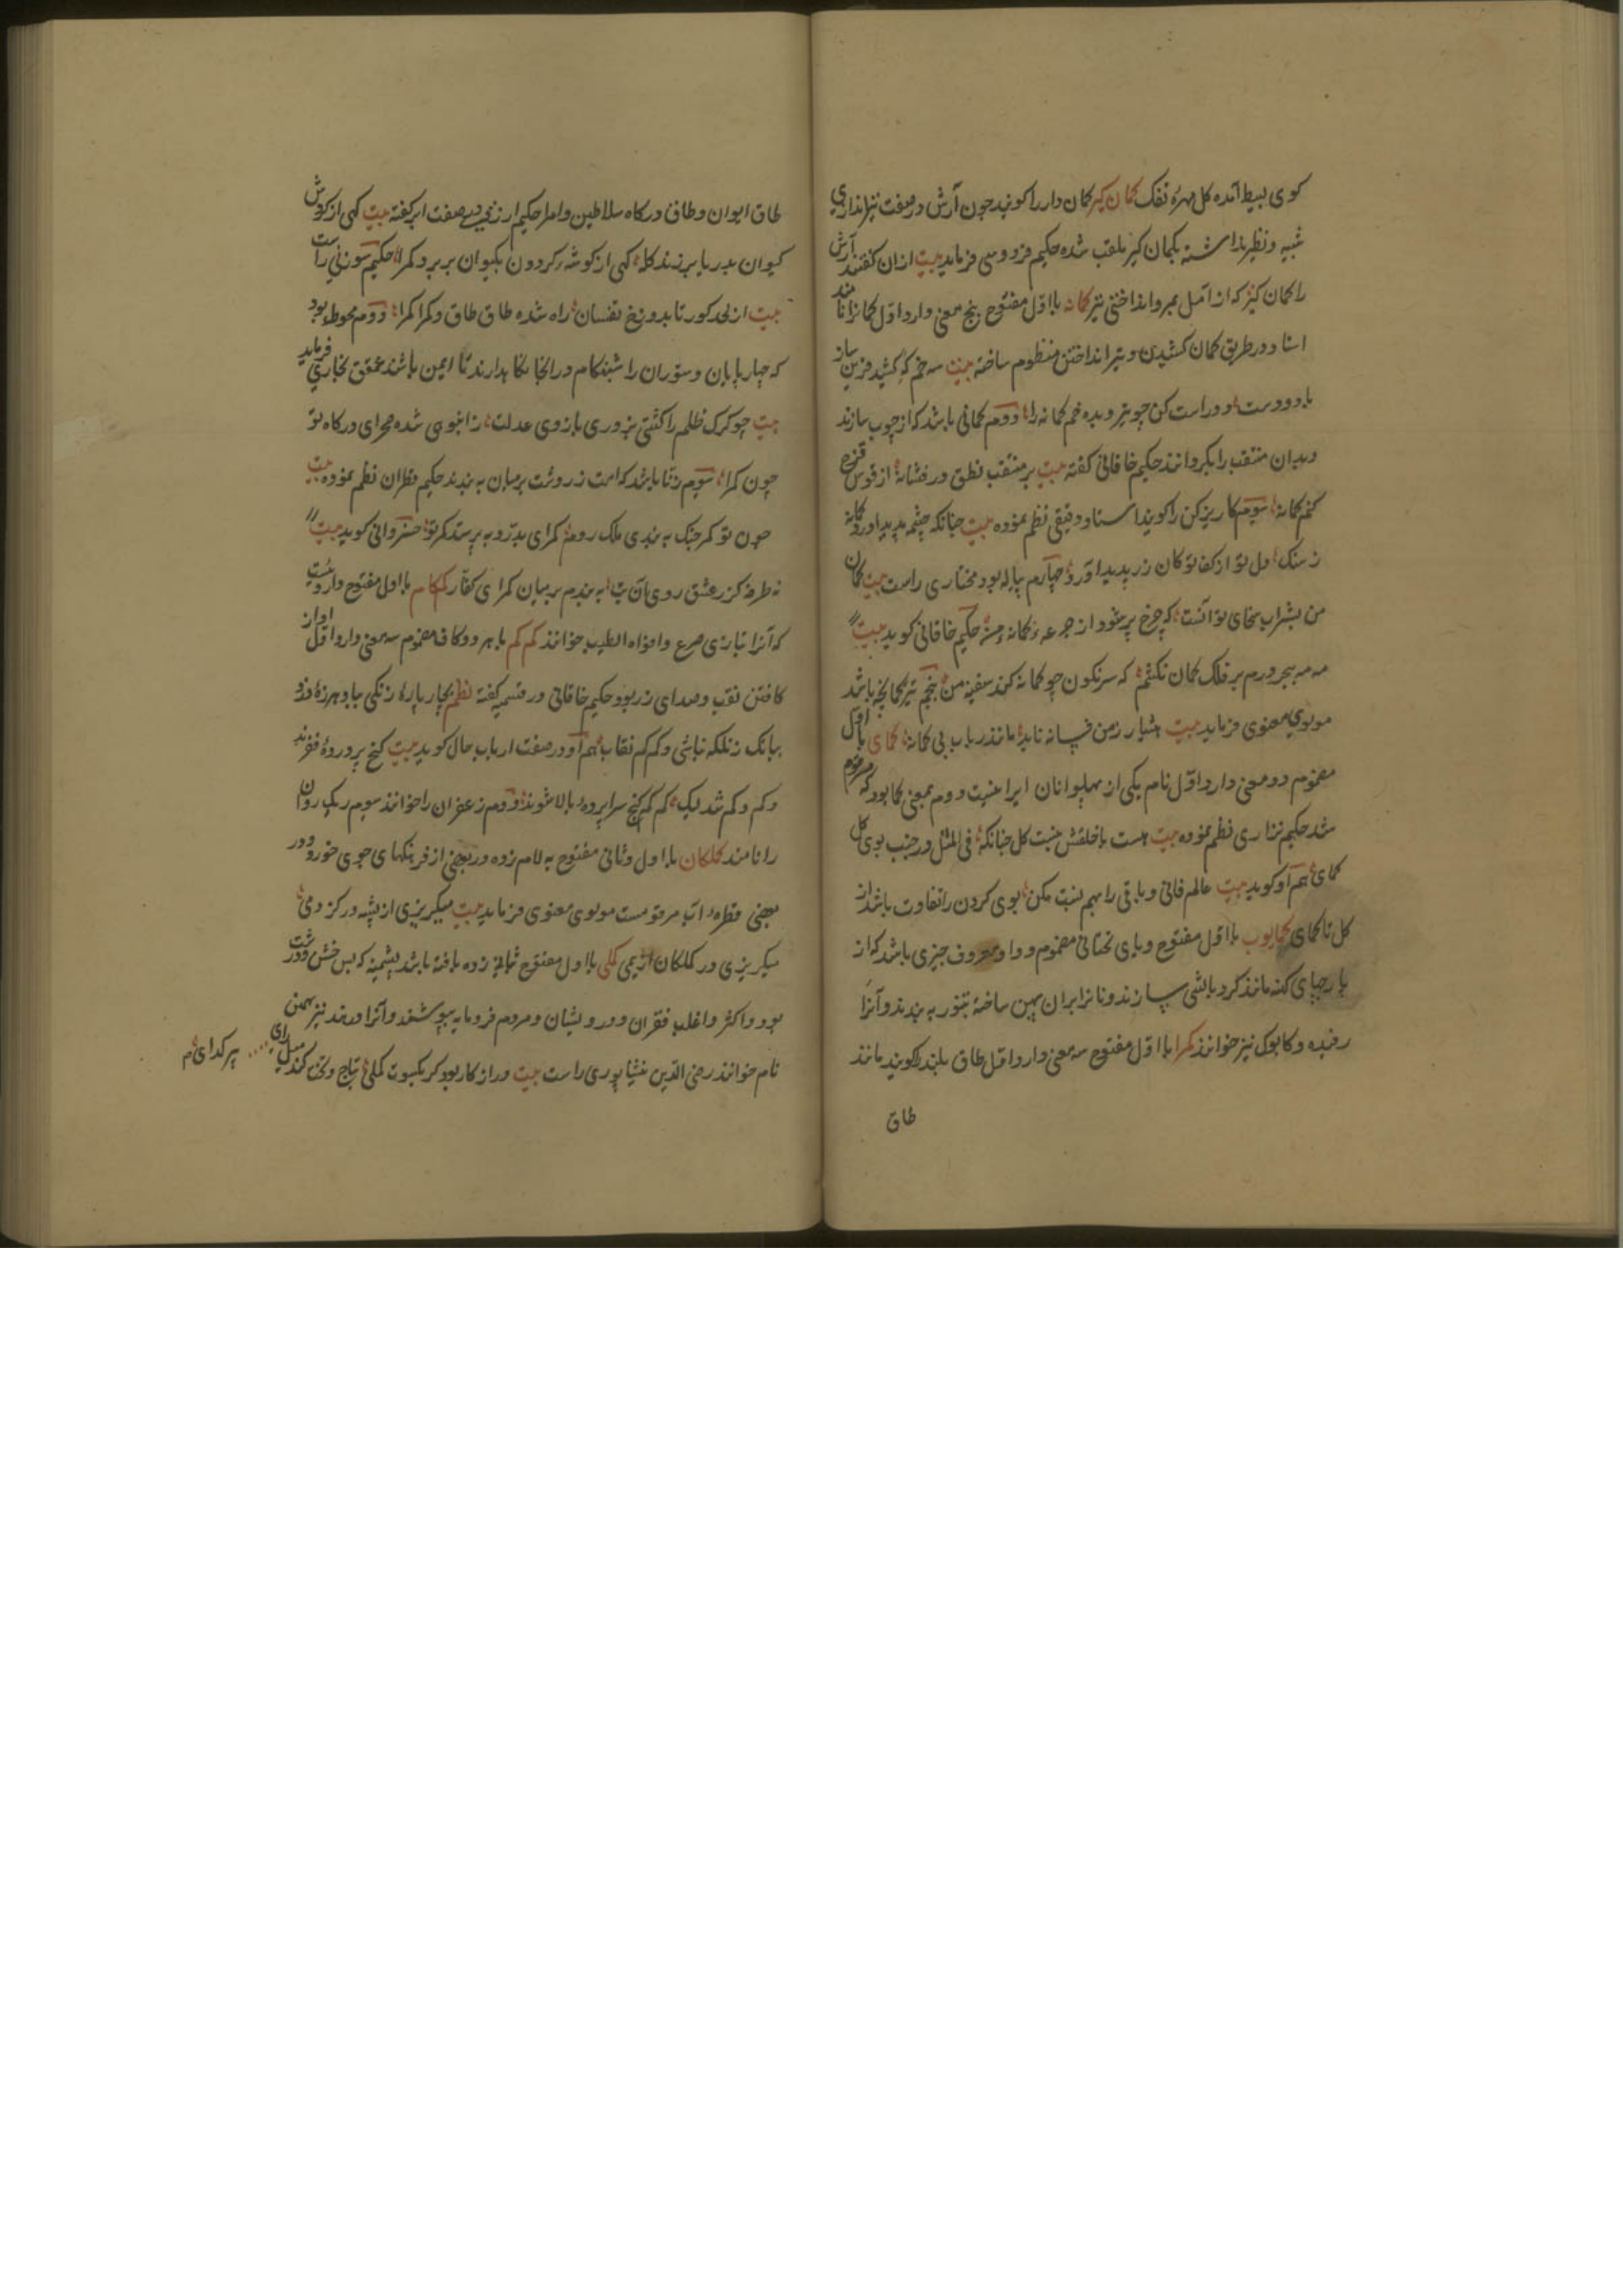 کوی بسیط آمده کل مهرهٔ تفک کمان کیر کمان دار را کویند چون آرش در صفت تیراندازی
شبیه و نظیر نداشته بکمان کیر ملقب شده حکیم فردوسی فرماید بیت ازان کفتند آرش
را کمان کیر که از آمل بمرو انداختی تیر کمانه با اول مفتوح پنج معنی دارد اول کمانرا نامند
استاد در طریق کمان کشیدن و تیر انداختن منظوم ساخته بیت سه خم که کشید فزین ساز
با دو دست و راست کن چو تیر و بده خم کمانه را دوم کمانی باشد که از چوب سازند
و بدان مثقب را بکردانند حکیم خاقانی کفته بیت بر مثقب نطق در فشانه از قوس قزح
کنم کمانه سوم کاریز کن را کویند استاد دقیقی نظم نموده بیت چنانکه چشمه پدید آورد کمانه
ز سنک دل تو از کف تو کان زر پدید آورد چهارم پیاله بود مختاری راست بیت کمان
من بشراب سخای تو آنست که چرخ پر شود از جرعهٔ کمانهٔ من حکیم خاقانی کوید بیت
مه مه بهجر درم بر فلک کمان نکشم که سرنکون چو کمانه کند سفینه من پنجم تیر کمانچه باشد
مولوی معنوی فرماید بیت بشیار زمن فسانه ناید مانند رباب بی کمانه کمای با اول
مضموم دو معنی دارد اول نام یکی از پهلوانان ایرانست دوم بمعنی کما بود که مرقوم
شد حکیم نزاری نظم نموده بیت هست با خلقش نسبت کل چنانکه فی المثل در جنب بوی کل
کمای هم او کوید بیت عالم فانی و باقی را بهم نسبت مکن بوی کردن را تفاوت باشد از
کل تا کمای کمایوب با اول مفتوح و بای تحتانی مضموم و واو معروف چیزی باشد که از
پارچهای کهنه مانند کرد بالشی سازند و نانرا بران پهن ساخته بتنور به بندند و آنرا
رفیده و کابوک نیز خوانند کمرا با اول مفتوح سه معنی دارد اول طاق بلند را کویند مانند
طاق
طاق ایوان و طاق درکاه سلاطین و امرا حکیم ارزقی در صفت ابر کفته بیت کهی از کوش
کیوان بدریا برزند کله کهی از کوشه کردون بکیوان بر برد کمرا حکیم سوزنی راست
بیت از لحد کور تا بدوزخ تفسان راه شده طاق طاق و کمرا کمرا دوم محوطه بود
که چهارپایان و ستوران را شبنکام در انجا نکاه بدارند تا ایمن باشند عمعق بخاری فرماید
بیت چو کرک ظلم را کشتی بزوری بازوی عدلت ز انبوهی شده صحرای درکاه تو
چون کمرا سوم زنار باشد که امت زردشت بر میان به بندند حکیم قطران نظم نموده بیت
چون تو کمر جنک به بندی ملک روم کمرای بدرّد به پرستد کمر تو خسروانی کوید بیت
نه طرفه کز ر عشق روی آن بت به بندم بر میان کمرای کفار کمکام با اول مفتوح داروئیست
که آنرا تبازی صرع و افواه الطیب خوانند کم کم با هر دو کاف مضموم سه معنی دارد اول آواز
کافتن نقب و صدای زر بود حکیم خاقانی در قسمیه کفته نظم بچار پارهٔ زنکی بباد هرزهٔ دزد
ببانک زنکله نباش و کم کم نقاب هم او در صفت ارباب حال کوید بیت کنج پروردهٔ فقرند
و کم و کم شد لیک کم کم کنج سراپرده بالا شوند دوم زعفران را خوانند سوم ریک روان
را نامند کلکان با اول و ثانی مفتوح به لام زده در بعضی از فرهنکهای جوی خورد و در
بعضی قطره آب مرقومست مولوی معنوی فرماید بیت میکریزی از پشه در کژدمی
میکریزی در کلکان از یمی کملی با اول مفتوح بثانی زده بافته باشد پشمینه که بس خشن و درشت
بود و اکثر و اغلب فقران و درویشان و مردم فرومایه بپوشند و آنرا در هند نیز بهمین
نام خوانند رضی الدین نیشاپوری راست بیت دراز کار بود کر بکسوت کملی بتاج و تخت کند میل
رای .... هر کدای م